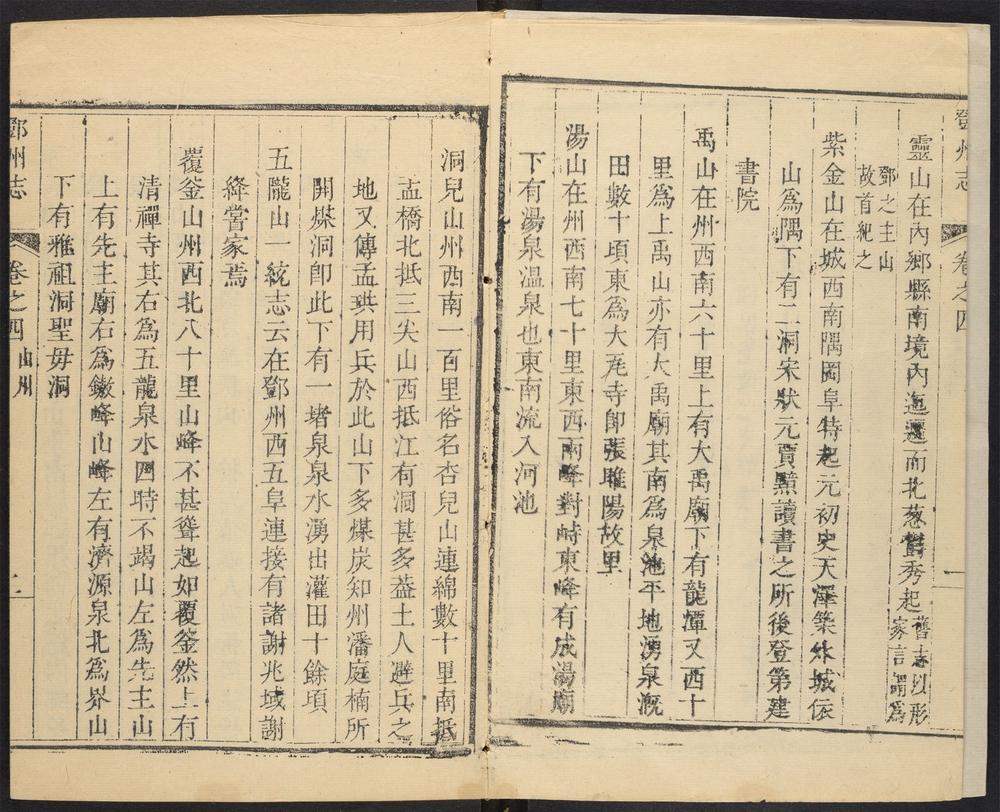 鄧州志
卷之四
靈山在內鄉縣南境內迤邐而北葱鬱秀起舊志以形
家言謂爲
鄧之主山
故首紀之
紫金山在城西南隅岡阜特起元初史天澤築外城依
山爲隅下有二洞宋狀元賈黯讀書之所後登第建
書院
禹山在州西南六十里上有大禹廟下有龍潭又西十
里爲上禹山亦有大禹廟其南爲泉池平地湧泉漑
田數十頃東爲大寺卽張睢陽故里
湯山在州西南七十里東西兩峰對峙東峰有成湯廟
下有湯泉溫泉也東南流入河池
洞兒山州西南一百里俗名杏兒山連綿數十里南抵
孟橋北抵三尖山西抵江有洞甚多葢土人避兵之
地又傳孟珙用兵於此山下多煤炭知州潘庭楠所
開煤洞卽此下有一堵泉泉水湧出灌田十餘頃
五隴山一統志云在鄧州西五阜連接有諸謝兆域謝
絳嘗家焉
覆釜山州西北八十里山峰不甚聳起如覆釜然上有
清禪寺其右爲五龍泉水四時不竭山左爲先主山
上有先主廟右爲鐓峰山峰左有濟源泉北爲界山
下有雅祖洞聖毋洞
鄧州志
卷之四
山州
二